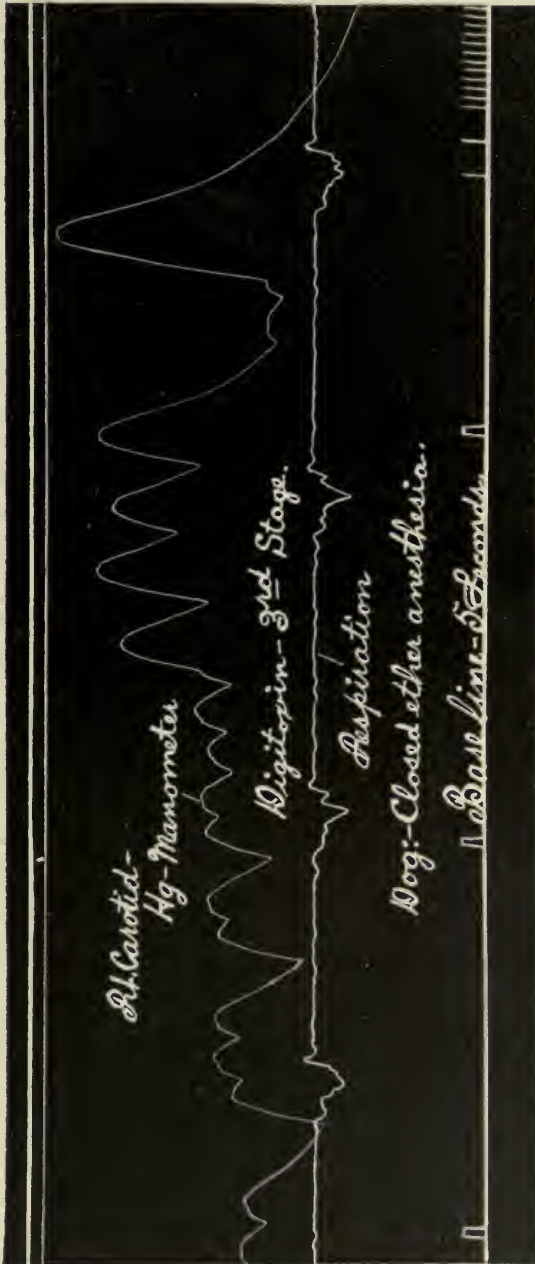 Rt. Carotid-
Hg-Manometer
Digitoxin-3rd Stage.
Respiration
Dog:-Closed ether anesthesia.
Base line-5 Seconds.